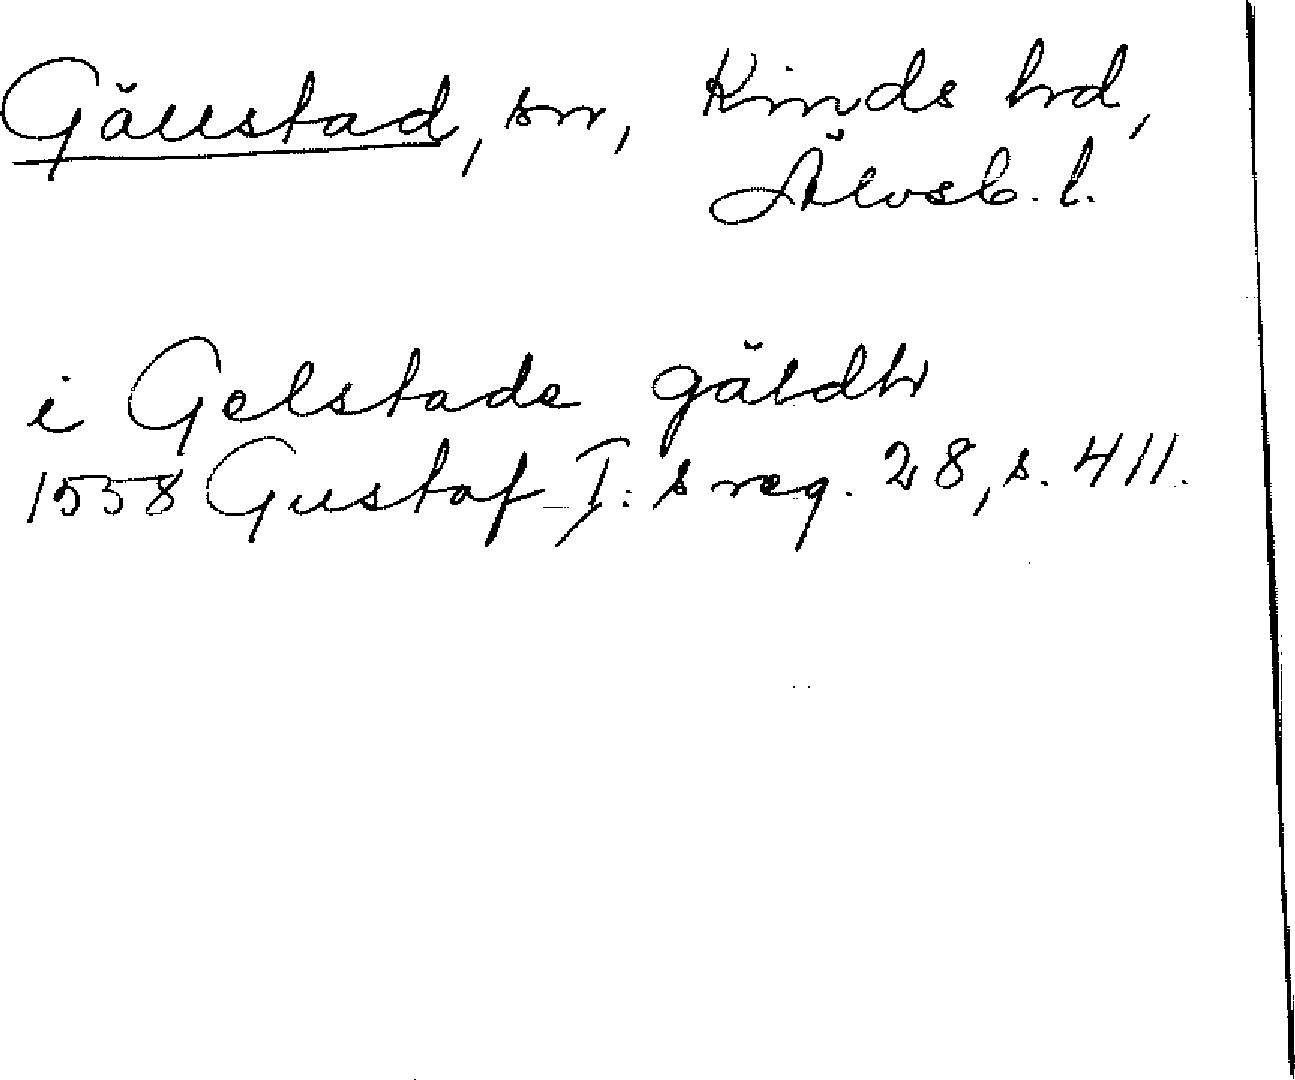 Gällstad, sn, Kinds hrd,
Älvsb. l.
i Gelstade gäldh
1558 Gustaf I:s reg. 28, s. 411.